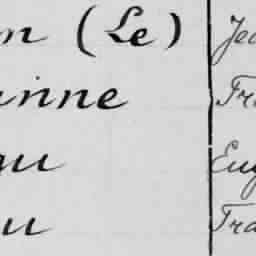 n (Le) Jea
anne Fra
au Eug
u Fra